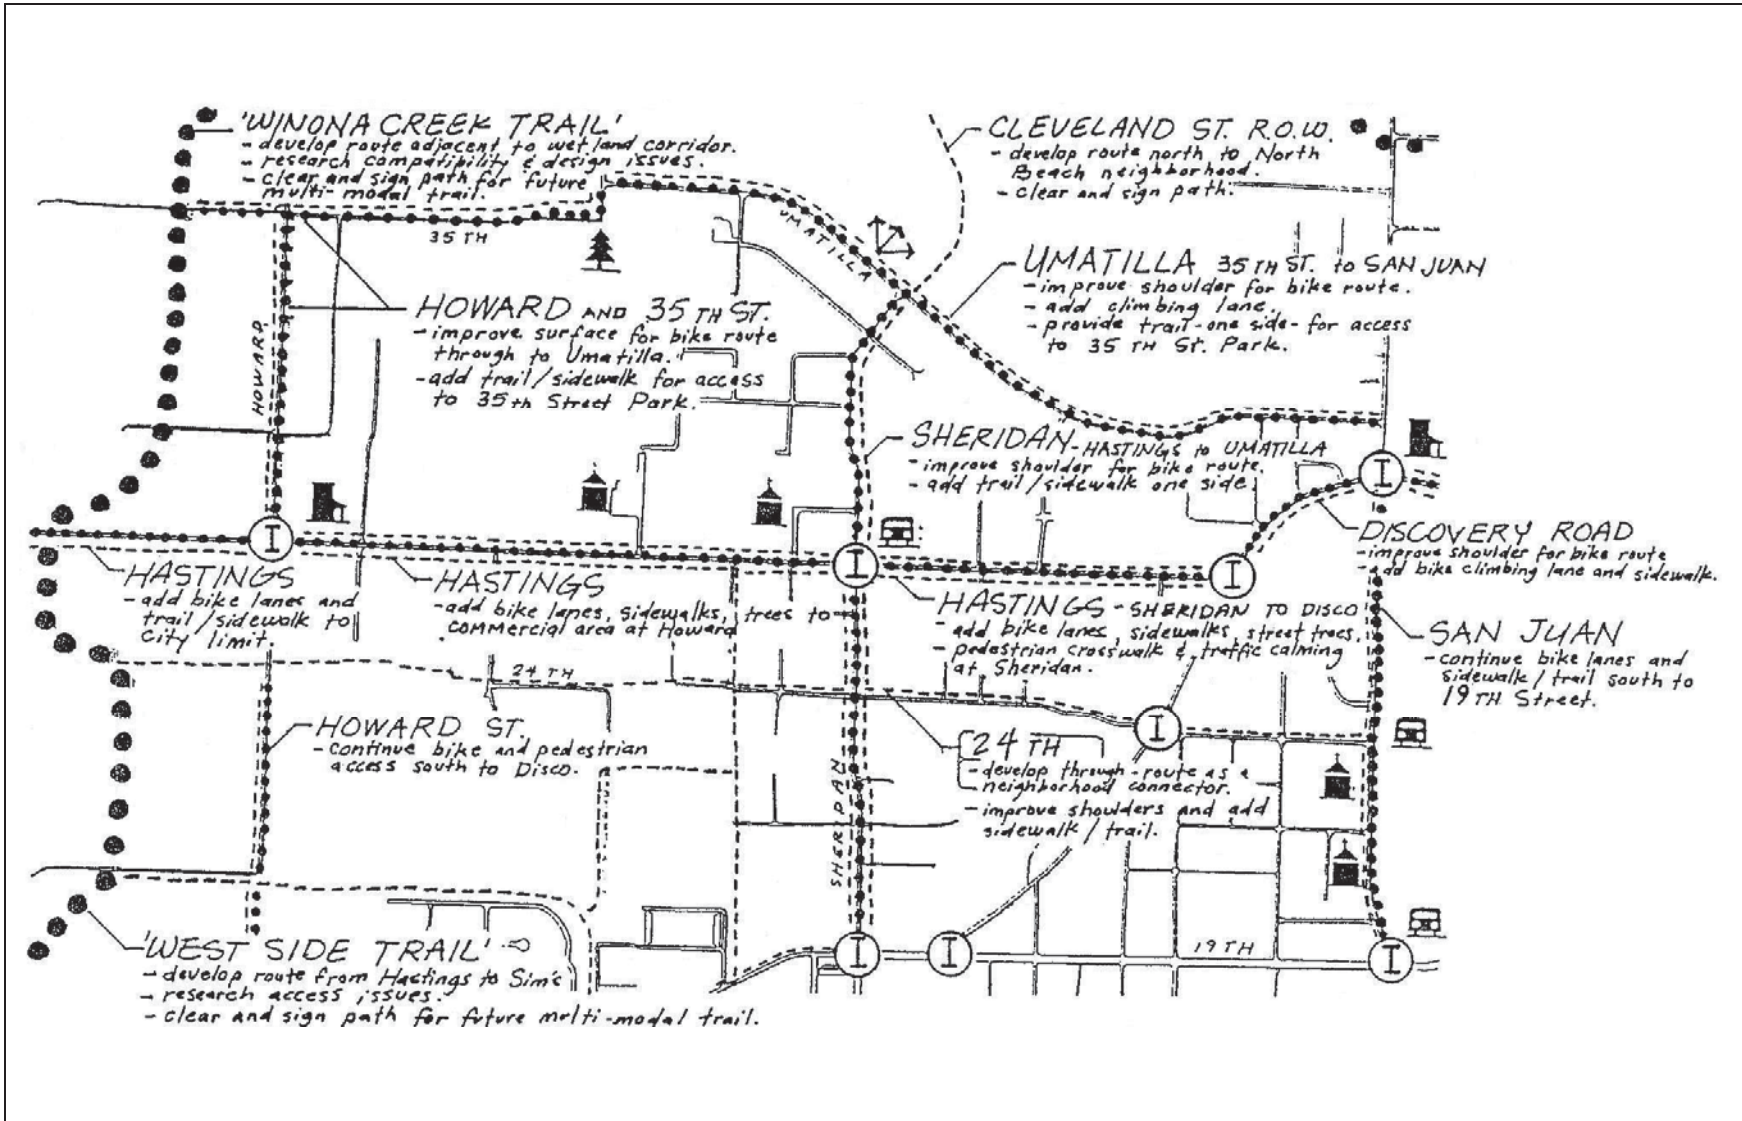 'WINONA CREEK TRAIL'
- develop route adjacent to wetland corridor.
- research compatibility & design issues.
- clear and sign path for future
multi-modal trail.
CLEVELAND ST. R.O.W.
- develop route north to North
Beach neighborhood.
- clear and sign path.
35 TH
UMATILLA
UMATILLA 35TH ST. to SAN JUAN
- improve shoulder for bike route.
- add climbing lane.
- provide trail - one side - for access
to 35 TH St. Park.
HOWARD AND 35 TH ST.
- improve surface for bike route
through to Umatilla.
- add trail/sidewalk for access
to 35th Street Park.
HOWARD
SHERIDAN - HASTINGS to UMATILLA
- improve shoulder for bike route.
- add trail/sidewalk one side.
I
I
I
I
DISCOVERY ROAD
- improve shoulder for bike route
- add bike climbing lane and sidewalk.
HASTINGS
- add bike lanes and
trail/sidewalk to
City limit.
HASTINGS
- add bike lanes, sidewalks, trees to
commercial area at Howard
HASTINGS - SHERIDAN TO DISCO
- add bike lanes, sidewalks, street trees,
- pedestrian crosswalk & traffic calming
at Sheridan.
SAN JUAN
- continue bike lanes and
sidewalk/trail south to
19TH Street.
24 TH
HOWARD ST.
- continue bike and pedestrian
access south to Disco.
I
24 TH
- develop through-route as a
neighborhood connector.
- improve shoulders and add
sidewalk/trail.
SHERIDAN
'WEST SIDE TRAIL'
- develop route from Hastings to Sims
- research access issues.
- clear and sign path for future mrlti-modal trail.
I
I
19 TH
I